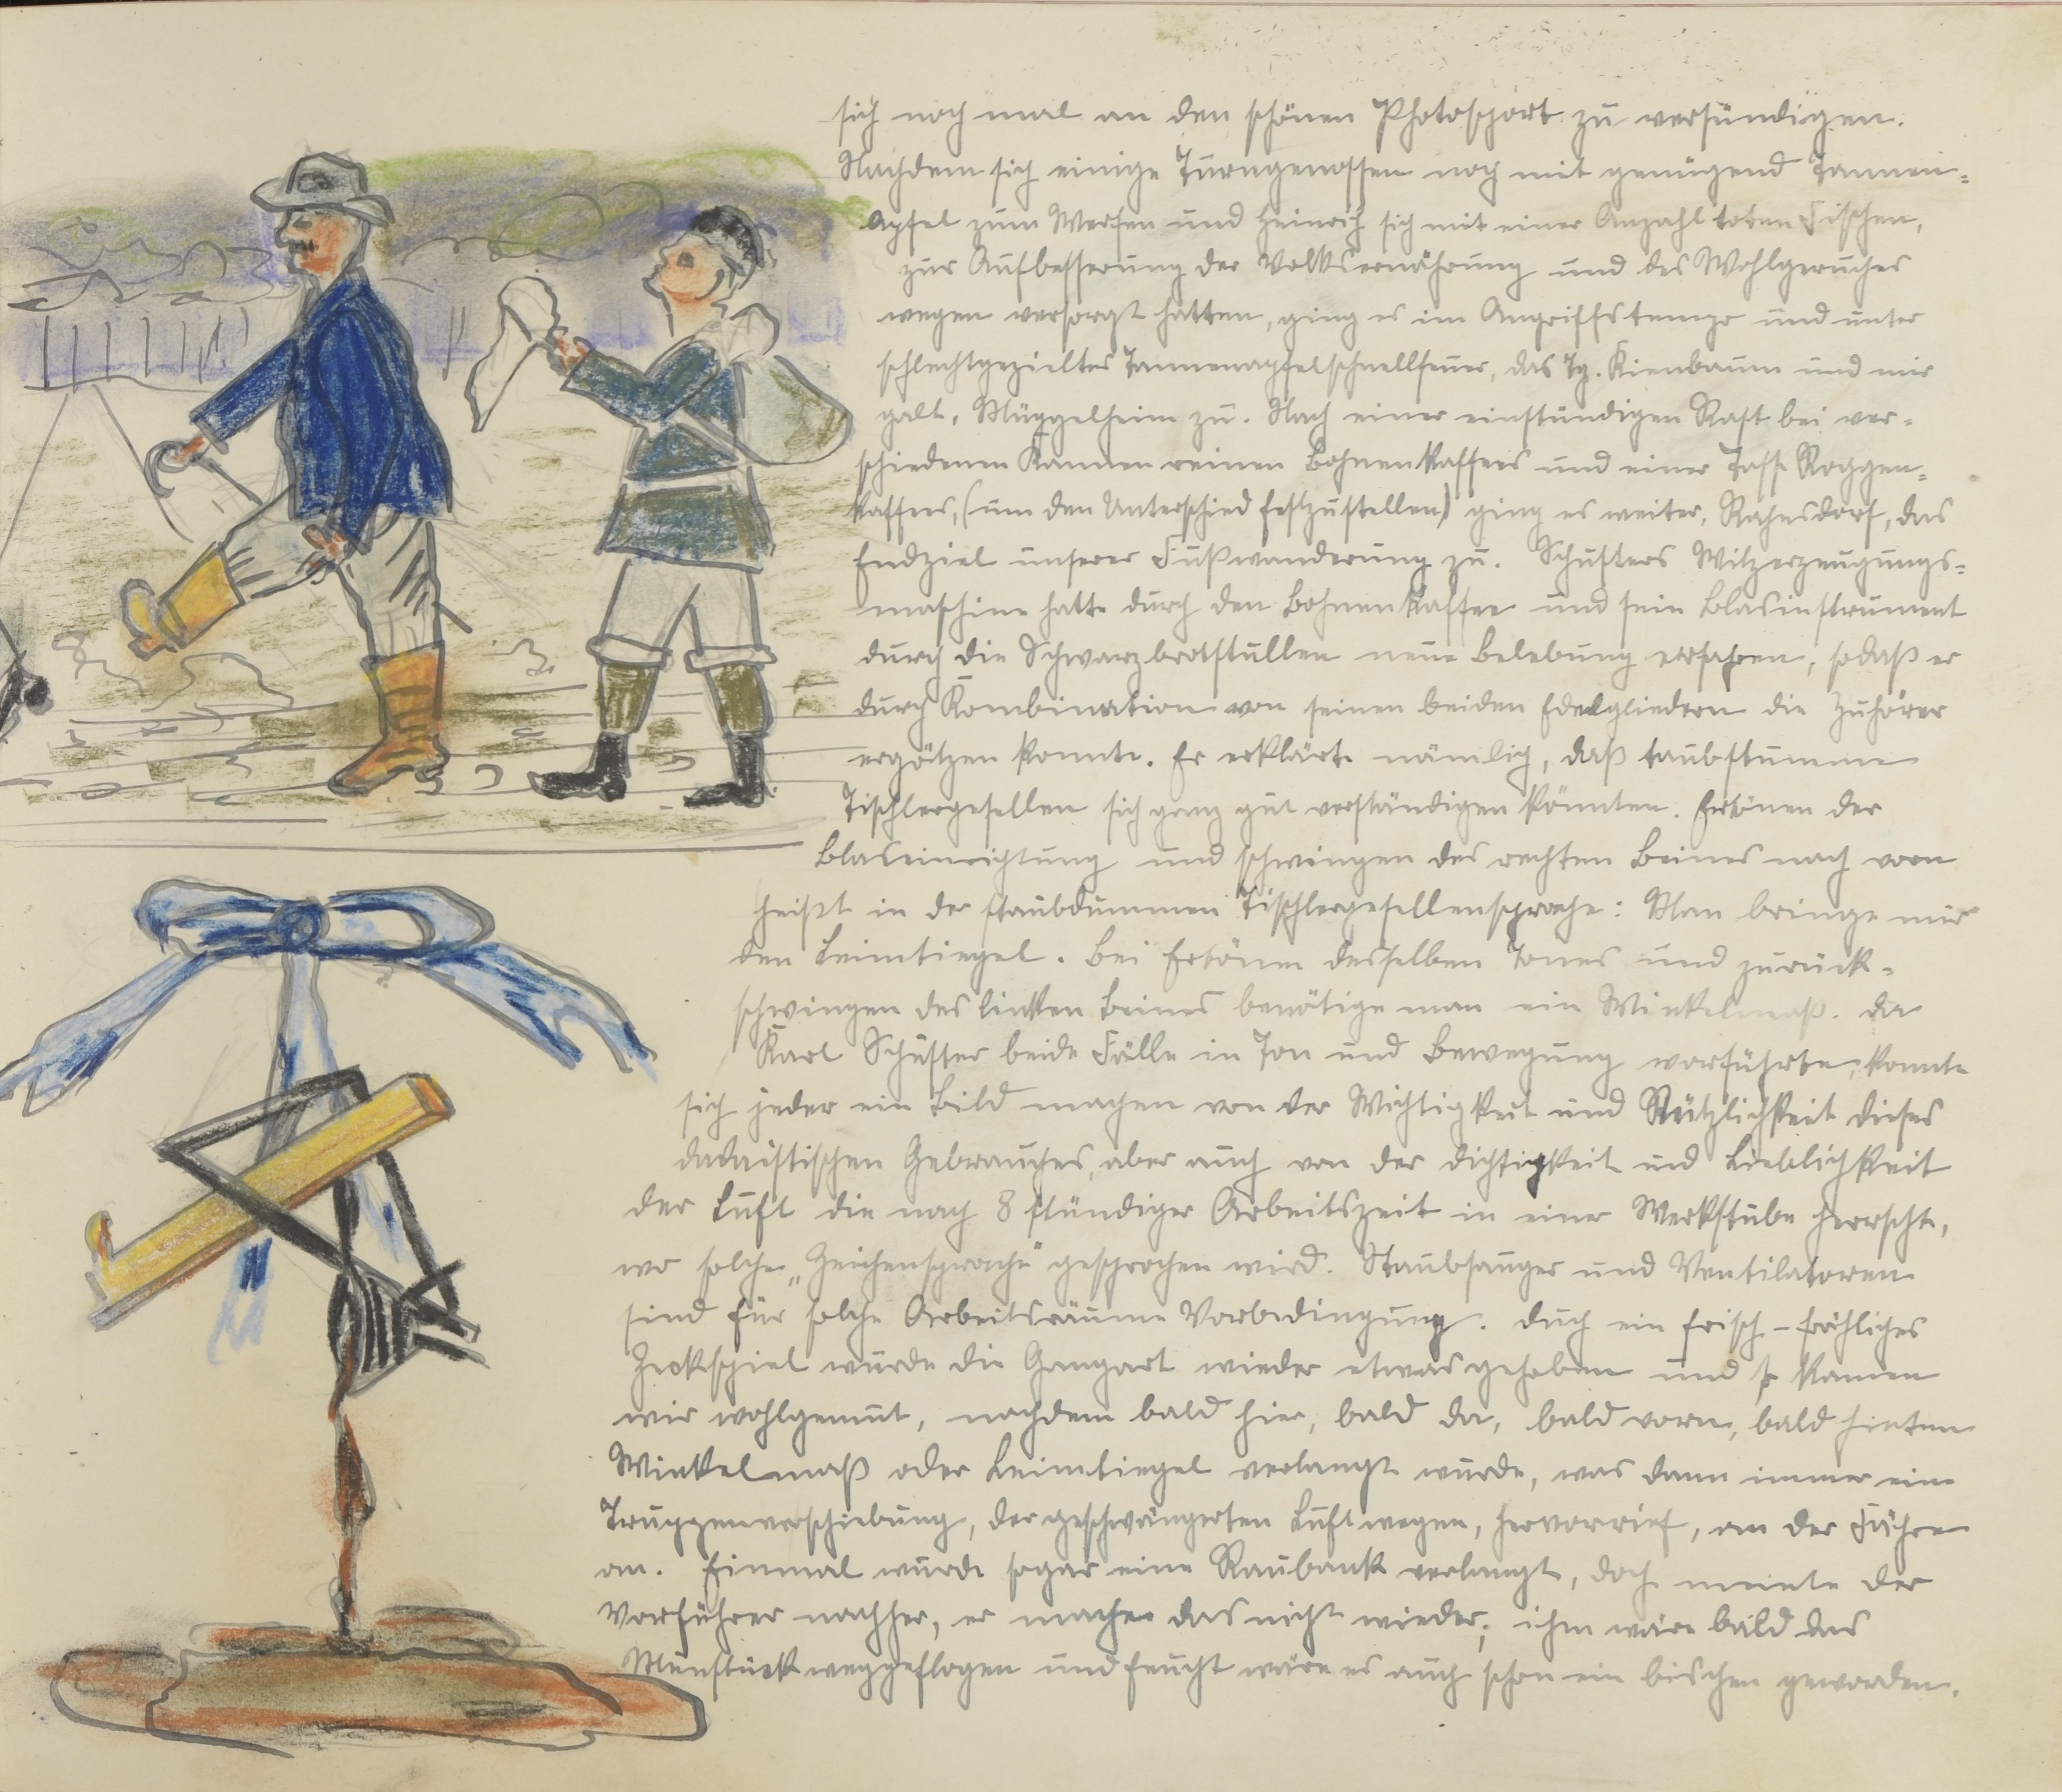 sich noch mal an den schönen Photosport zu versündigen.
Nachdem sich einige Turngenossen noch mit genügend Tannen=
Äpfel zum Werfen und Heinrich sich mit einer Anzahl toten Fischen,
zur Aufbesserung der Volksernährung und des Wohlgeruches
wegen versorgt hatten, ging es im Angriffstempo und unter
schlechtgezieltes Tannenapfelschnellfeuer, das Tg. Kienbaum und mir
galt, Müggelheim zu. Nach einer einstündigen Rast bei ver-
schiedenen Kannen reinen Bohnenkaffees und einer Tasse Roggen=
kaffees, (um den Unterschied festzustellen) ging es weiter, Rahnsdorf, das
Endziel unserer Fußwanderung zu. Schusters Witzerzeugungs=
maschine hatte durch den Bohnenkaffee und sein Blasinstrument
durch die Schwarzbrotstullen neue Belebung erfahren, sodaß er
durch Kombination von seinen beiden Edelgliedern die Zuhörer
ergötzen konnte. Er erklärte nämlich, daß taubstumme
Tischlergesellen sich ganz gut verständigen könnten. Ertönen der
Blaseinrichtung und schwingen des rechten Beines nach vorn
heißt in der staubdummen Tischlergesellensprache: Man bringe mir
den Leimtiegel. Bei Ertönen desselben Tones und zurück-
schwingen des linken Beines benötige man ein Winkelmaß. Da
Karl Schuster beide Fälle in Ton und Bewegung vorführte, konnte
sich jeder ein Bild machen von der Wichtigkeit und Nützlichkeit dieses
dadaistischen Gebrauches, aber auch von der Dichtigkeit und Lieblichkeit
der Luft die nach 8 stündiger Arbeitszeit in einer Werkstube herrscht,
wo solche „Zeichensprache" gesprochen wird. Staubsauger und Ventilatoren
sind für solche Arbeitsräume Vorbedingung. Duch ein frisch-fröhliches
Zeckspiel wurde die Gangart wieder etwas gehoben und so kamen
wir wohlgemut, nachdem bald hier, bald da, bald vorn, bald hinten
Winkelmaß oder Leimtiegel verlangt wurde, was dann immer eine
Truppenverschiebung, der geschwängerten Luft wegen, hervorrief, an der Fähre
an. Einmal wurde sogar eine Raubank verlangt, doch meinte der
Vorführer nachher, er mache das nicht wieder, ihm wäre bald das
Munstück weggeflogen und feucht wäre es auch schon ein bischen geworden.